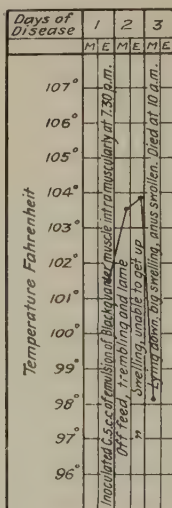 Days of Disease 1 2 3
M E M E M E
107°
106°
105°
104°
103°
102°
101°
100°
99°
98°
97°
96°
Temperature Fahrenheit
Inoculated C.5.c.c of emulsion of blackquarter muscle intramuscularly at 7.30 p.m.
Off feed, trembling and lame
" Swelling, unable to get up
Lying down, big swelling, anus swollen. Died at 10 a.m.